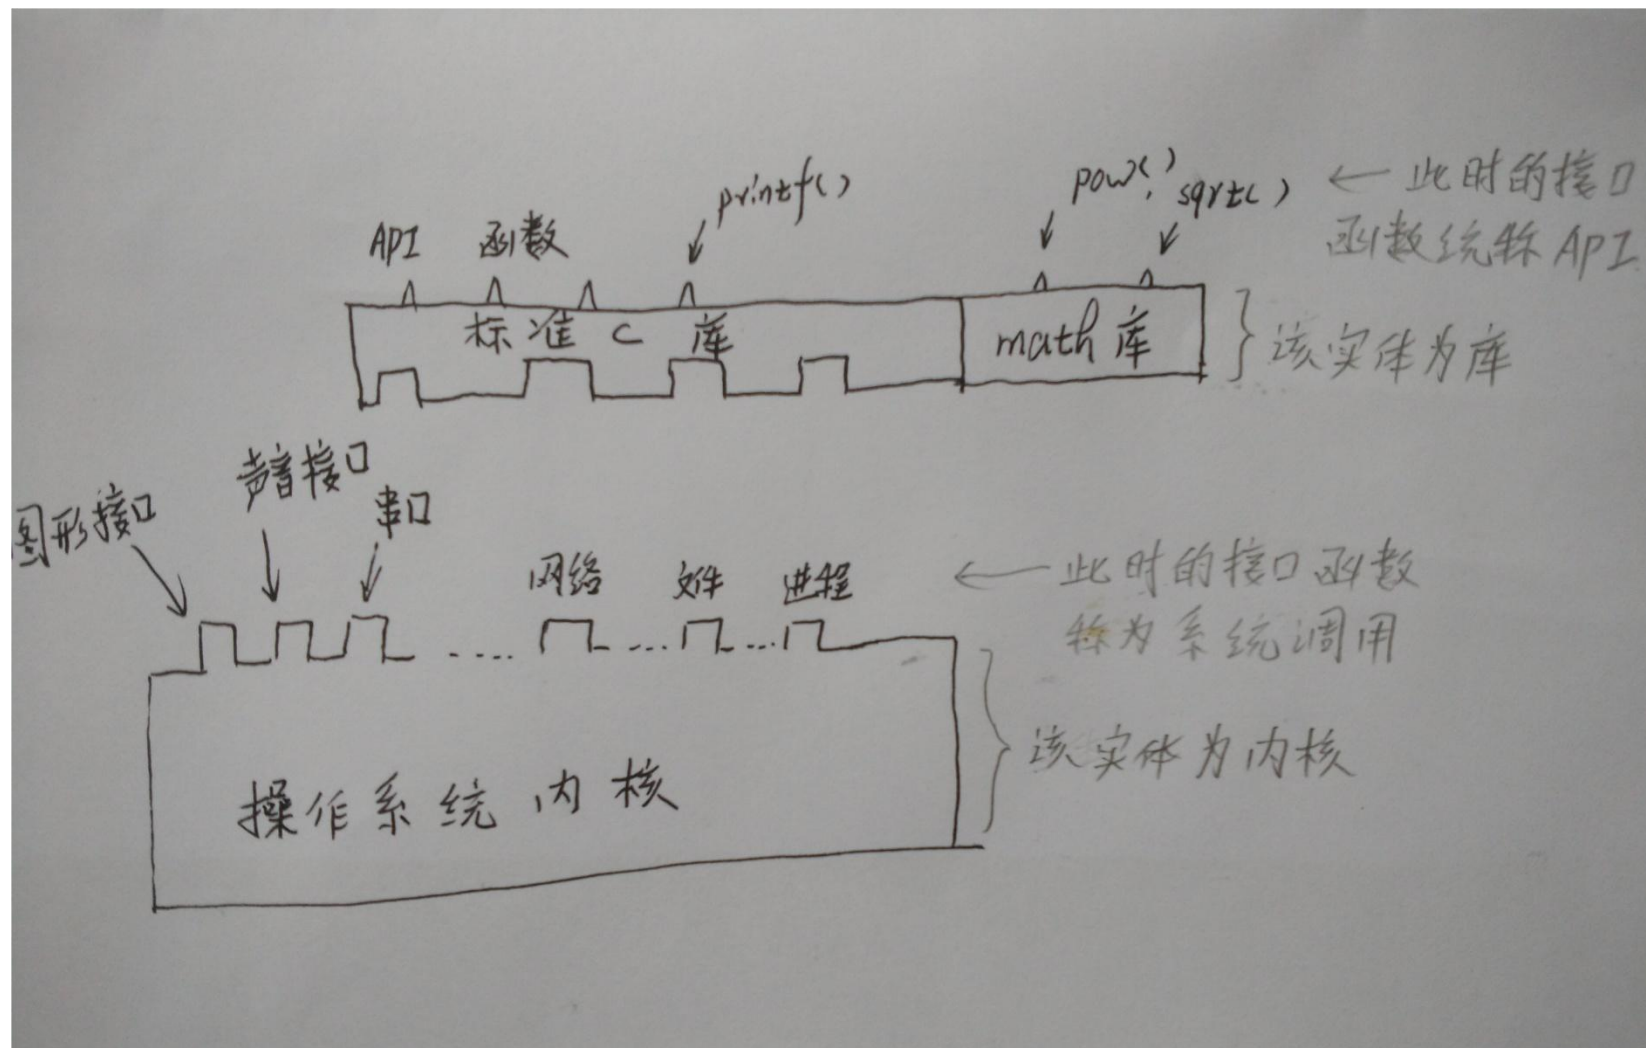 printf()
pow()
sqrt()
← 此时的接口
函数统称API
API 函数
标准C库
math库
该实体为库
图形接口
声音接口
串口
网络
文件
进程
← 此时的接口函数
称为系统调用
操作系统内核
该实体为内核